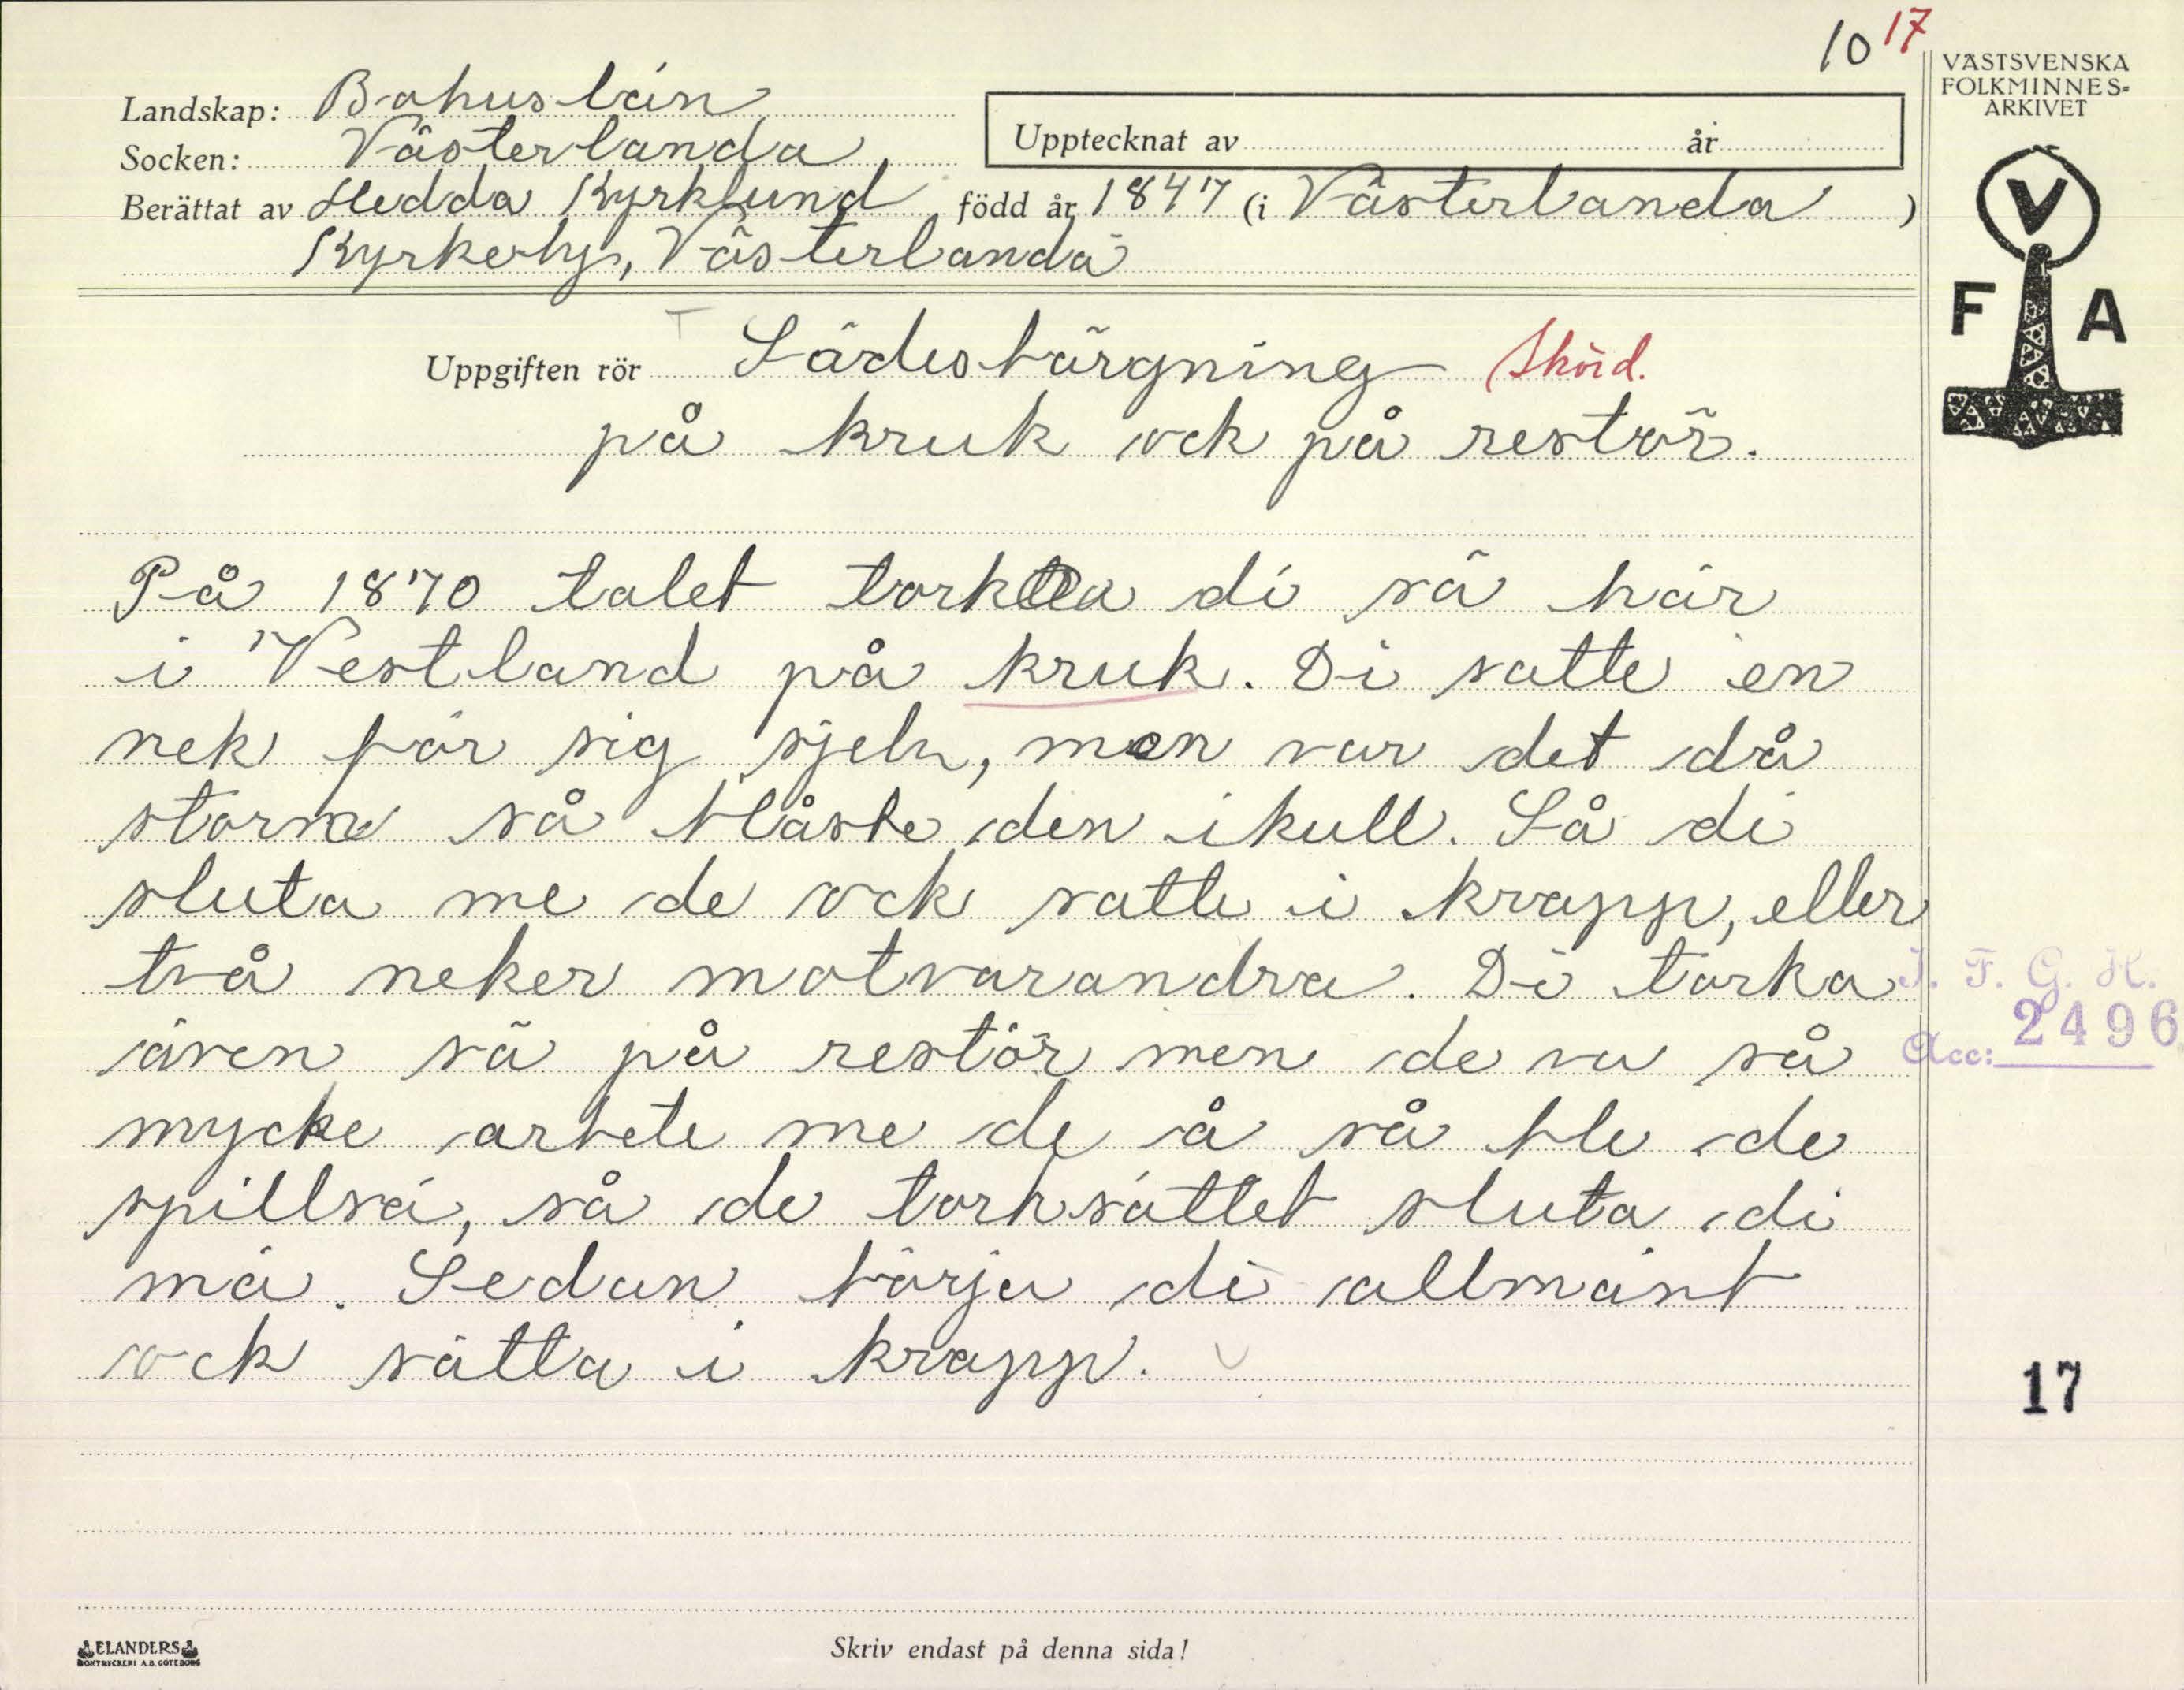 10 17
VÄSTSVENSKA
FOLKMINNES-
ARKIVET
Landskap: Bohuslän
Socken: Västerlanda
Upptecknat av år
Berättat av Hedda Kyrklund född år 1847 (i Västerlanda)
Kyrkeby, Västerlanda
V
F A
Uppgiften rör Sädesbärgning Skörd.
på kruk ock på restör.
På 1870 talet torkta di sä här
i Vestland på kruk. Di satte en
nek för sig sjelv, men var det då
storm så blåste den ikull. Så di
sluta me de ock satte i krapp, eller
två neker motvarandra. Di torka
även sä på restör men de va så
mycke arbete me de å så ble de
spillsä, så de torksättet sluta di
mä. Sedan börja di allmänt
ock sätta i krapp.
I. F. G. H.
Acc: 2496
17
ELANDERS
BOKTRYCKERI A.B. GÖTEBORG
Skriv endast på denna sida!